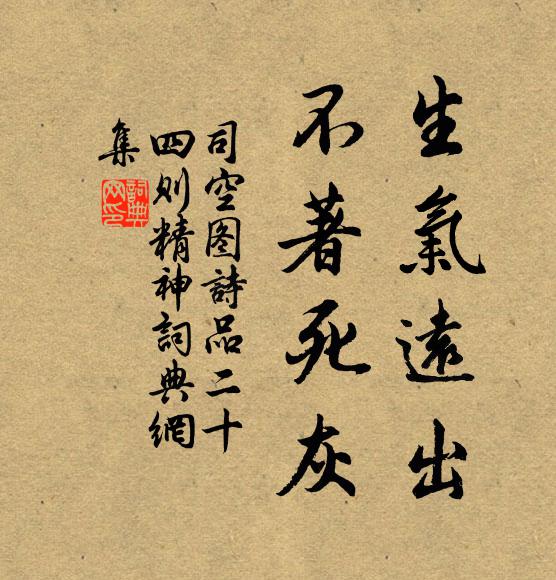 生氣遠出
不著死灰
司空图詩品二十
四则精神詞典網
集
詞典
网印